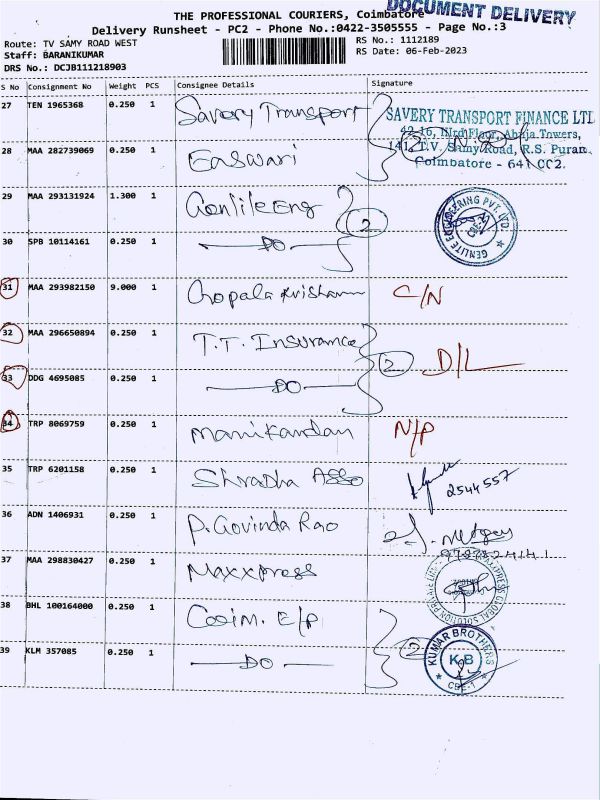 DOCUMENT DELIVERY
THE PROFESSIONAL COURIERS, Coimbatore
Delivery Runsheet - PC2 - Phone No.:0422-3505555 - Page No.:3
Route: TV SAMY ROAD WEST
RS No.: 1112189
Staff: BARANIKUMAR
RS Date: 06-Feb-2023
DRS No.: DCJB111218903
S No Consignment No Weight PCS Consignee Details Signature
27 TEN 1965368 0.250 1 Savery Transport
SAVERY TRANSPORT FINANCE LTD
42-16, IIIrd Floor, Ahuja Towers,
141, T.V. Samy Road, R.S. Puram
Coimbatore - 641 002.
28 MAA 282739069 0.250 1 Easwari
29 MAA 293131924 1.300 1 Genlite Eng 2
GENLITE ENGINEERING PVT. LTD.
CBE-2
30 SPB 10114161 0.250 1 DO
31 MAA 293982150 9.000 1 Gopala Krishnan C/N
32 MAA 296650894 0.250 1 T.T. Insurance 2 D/L
33 DDG 4695085 0.250 1 DO
34 TRP 8069759 0.250 1 Manikandan N/P
35 TRP 6201158 0.250 1 Shradha Asso 2544557
36 ADN 1406931 0.250 1 P. Govinda Rao
37 MAA 298830427 0.250 1 Maxxpress
38 BHL 100164000 0.250 1 Coim. E/P 2
KUMAR BROTHERS
K B
CBE-1
39 KLM 357085 0.250 1 DO